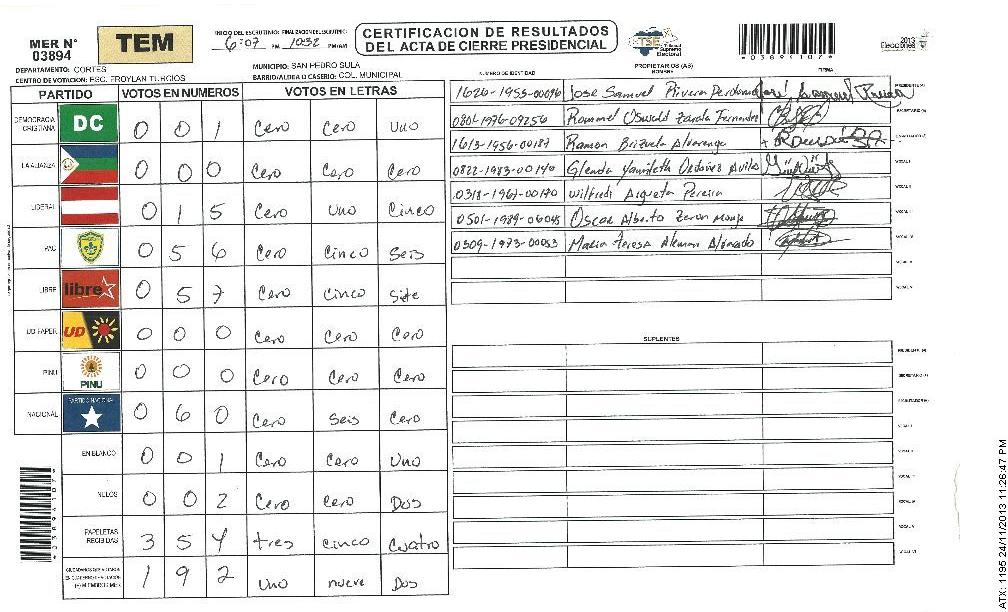 MER N° 03894
TEM
INICIO DEL ESCRUTINIO: 6:07 PM FINALIZACION DEL ESCRUTINIO: 10:32 PM/AM
CERTIFICACION DE RESULTADOS
DEL ACTA DE CIERRE PRESIDENCIAL
TSE Tribunal Supremo Electoral
*03894107*
2013 Elecciones
DEPARTAMENTO: CORTES
MUNICIPIO: SAN PEDRO SULA
CENTRO DE VOTACION: ESC. FROYLAN TURCIOS
BARRIO/ALDEA O CASERIO: COL. MUNICIPAL
PARTIDO VOTOS EN NUMEROS VOTOS EN LETRAS
DEMOCRACIA CRISTIANA DC 0 0 1 Cero Cero Uno
LA ALIANZA 0 0 0 Cero Cero Cero
LIBERAL 0 1 5 Cero Uno Cinco
PAC 0 5 6 Cero Cinco Seis
LIBRE libre 0 5 7 Cero Cinco Siete
UD FAPER UD 0 0 0 Cero Cero Cero
PINU PINU 0 0 0 Cero Cero Cero
NACIONAL PARTIDO NACIONAL 0 6 0 Cero Seis Cero
EN BLANCO 0 0 1 Cero Cero Uno
NULOS 0 0 2 Cero Cero Dos
PAPELETAS RECIBIDAS 3 5 4 tres cinco cuatro
1 9 2 Uno nueve Dos
PROPIETARIOS (AS)
NUMERO DE IDENTIDAD NOMBRE FIRMA
1626-1953-00096 Jose Samuel Rivera Perdomo PRESIDENTE (A)
0801-1976-09256 Rommel Oswald Zavala Fernandez SECRETARIO (A)
1613-1956-00187 Ramon Brizuela Alvarenga ESCRUTADOR (A)
0822-1983-00140 Glenda Yamileth Ordoñez Avila VOCAL I
0318-1967-00170 Wilfredi Argueta Pereira VOCAL II
0501-1989-06045 Oscar Alberto Zeron Monge VOCAL III
0509-1973-00053 Maria Teresa Aleman Alvarado VOCAL IV
VOCAL V
VOCAL VI
SUPLENTES
PRESIDENTE (A)
SECRETARIO (A)
ESCRUTADOR (A)
VOCAL I
VOCAL II
VOCAL III
VOCAL IV
VOCAL V
VOCAL VI
*03894107*
ATX: 1195 24/11/2013 11:26:47 PM